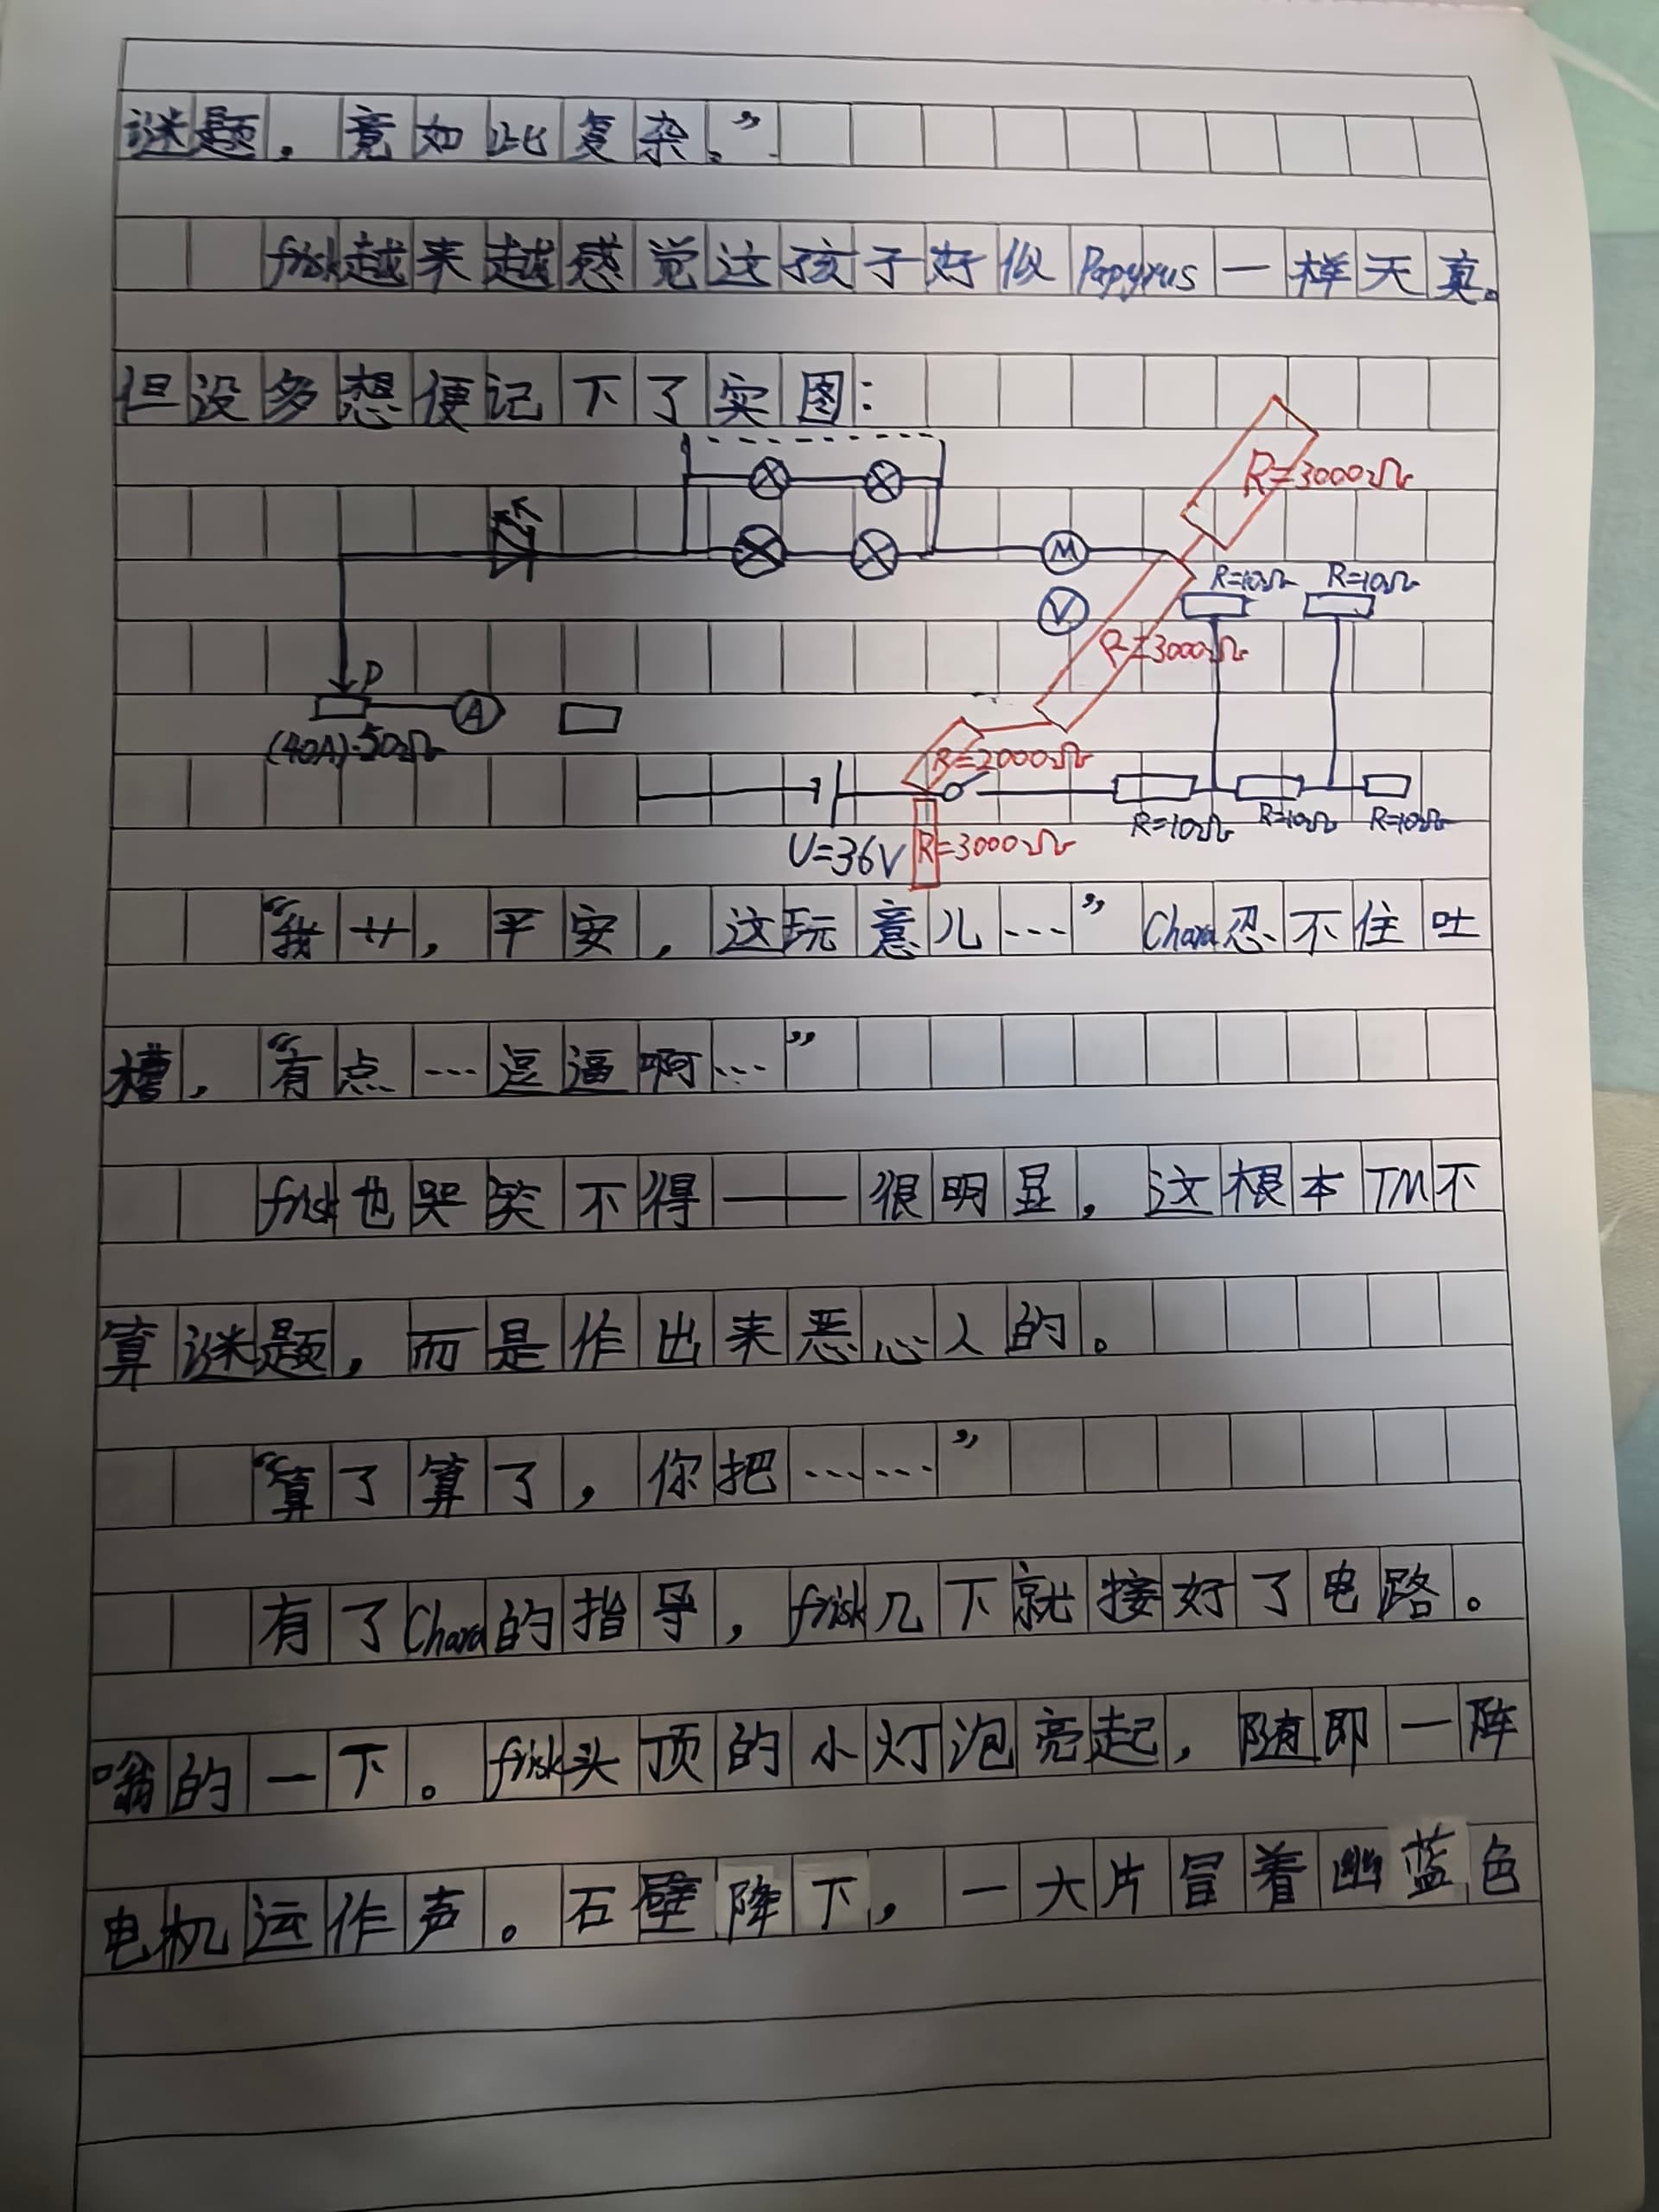 谜题，竟如此复杂。”
frisk越来越感觉这孩子好似Papyrus一样天真。
但没多想便记下了实图：
R=3000Ω
M
R=10Ω R=10Ω
V
R=3000Ω
P
A
(40A)·50Ω
R=2000Ω
R=10Ω R=10Ω R=10Ω
U=36V R=3000Ω
“我艹，平安，这玩意儿…”Chara忍不住吐
槽，“有点…逗逼啊…”
frisk也哭笑不得——很明显，这根本TM不
算谜题，而是作出来恶心人的。
“算了算了，你把……”
有了Chara的指导，frisk几下就接好了电路。
嗡的一下。frisk头顶的小灯泡亮起，随即一阵
电机运作声。石壁降下，一大片冒着幽蓝色